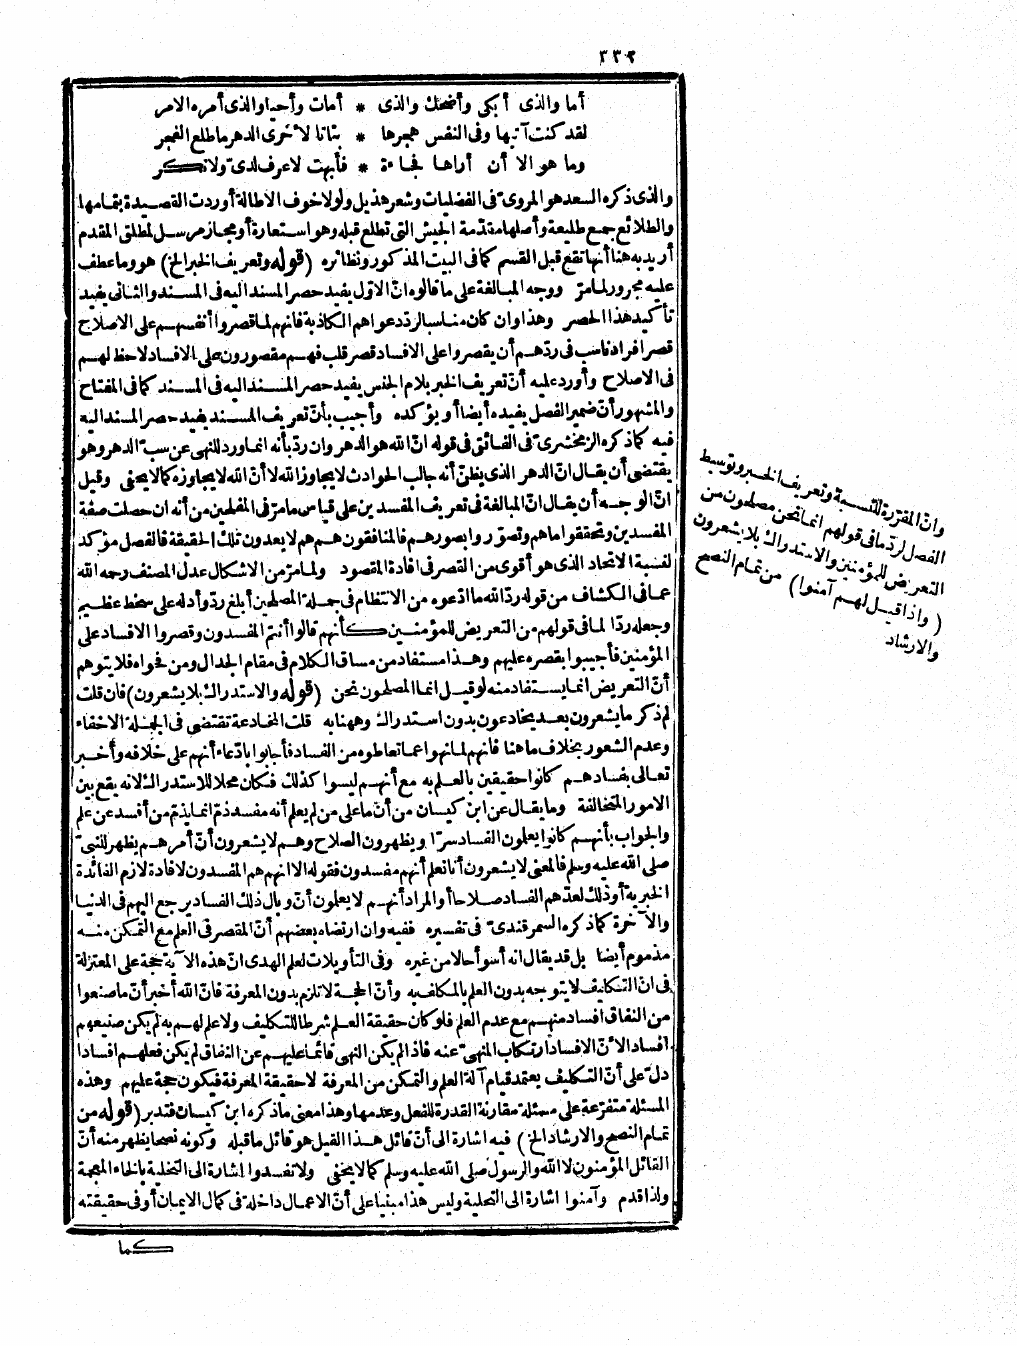 ٣٣٢
أما والذى أبكى وأضحك والذى * أمات وأحيا والذى أمره الامر
لقد كنت آتيها وفى النفس هجرها * بتاتا لاخرى الدهر ما طلع الفجر
وما هو الا أن أراها فجاءة * فأبهت لا عرف لدىّ ولا نكر
والذى ذكره السعد هو المروىّ فى المفضليات وشعر هذيل ولولا خوف الاطالة أوردت القصيدة بتمامها
والطلائع جمع طليعة وأصلها مقدّمة الجيش التى تطلع قبله وهو استعارة أو مجاز مرسل لمطلق المقدم
أريد به هنا أنها تقع قبل القسم كما فى البيت المذكور ونظائره (قوله وتعريف الخبر الخ) هو وما عطف
عليه مجرور لما مرّ ووجه المبالغة على ما قالوه انّ الاوّل يفيد حصر المسند اليه فى المسند والثانى يفيد
تأكيد هذا الحصر وهذا وان كان مناسبا لردّ دعواهم الكاذبة فانهم لما قصروا أنفسهم على الاصلاح
قصر افراد ناسب فى ردّهم أن يقصروا على الافساد قصر قلب فهم مقصورون على الافساد لاحظ لهم
فى الاصلاح وأورد عليه أنّ تعريف الخبر بلام الجنس يفيد حصر المسند اليه فى المسند كما فى المفتاح
والمشهور أنّ ضمير الفصل يفيده أيضا أو يؤكده وأجيب بأنّ تعريف المسند يفيد حصر المسند اليه
فيه كما ذكره الزمخشرىّ فى الفائق فى قوله انّ الله هو الدهر وان ردّ بأنه انما ورد للنهى عن سبّ الدهر وهو
يقتضى أن يقال انّ الدهر الذى يظنّ أنه جالب الحوادث لا يجاوز الله لا أنّ الله لا يجاوزه كما لا يخفى وقيل
انّ الوجه أن يقال انّ المبالغة فى تعريف المفسدين على قياس ما مرّ فى المفلحين من أنه ان حصلت صفة
المفسدين وتحققوا ما هم وتصوّروا بصورهم فالمنافقون هم هم لا يعدون تلك الحقيقة فالفصل مؤكد
لنسبة الاتحاد الذى هو أقوى من القصر فى افادة المقصود ولما مرّ من الاشكال عدل المصنف رحمه الله
عما فى الكشاف من قوله ردّ الله ما ادّعوه من الانتظام فى جملة المصلحين أبلغ ردّ وأدله على سخط عظيم
وجعله ردّا لما فى قولهم من التعريض للمؤمنين كأنهم قالوا أنتم المفسدون وقصروا الافساد على
المؤمنين فأجيبوا بقصره عليهم وهذا مستفاد من مساق الكلام فى مقام الجدال ومن فحواه فلا يتوهم
أنّ التعريض انما يستفاد منه لو قيل انما المصلحون نحن (قوله والاستدراك بلا يشعرون) فان قلت
لم ذكر ما يشعرون بعد يخادعون بدون استدراك وههنا به قلت المخادعة تقتضى فى الجملة الاخفاء
وعدم الشعور بخلاف ما هنا فانهم لما نهوا عما تعاطوه من الفساد فأجابوا بادّعاء أنهم على خلافه وأخبر
تعالى بفسادهم كانوا حقيقين بالعلم به مع أنهم ليسوا كذلك فكان محلا للاستدراك لانه يقع بين
الامور المتخالفة وما يقال عن ابن كيسان من أنّ ما على من لم يعلم أنه مفسد ذم انما يذمّ من أفسد عن علم
والجواب بأنهم كانوا يعلمون الفساد سرّا ويظهرون الصلاح وهم لا يشعرون أنّ أمرهم يظهر للنبىّ
صلى الله عليه وسلم فالمعنى لا يشعرون أنا نعلم أنهم مفسدون فقوله الا انهم هم المفسدون لافادة لازم الفائدة
الخبرية أو ذلك لعدّهم الفساد صلاحا أو المراد أنهم لا يعلمون أنّ وبال ذلك الفساد يرجع اليهم فى الدنيا
والآخرة كما ذكره السمرقندىّ فى تفسيره ففيه وان ارتضاه بعضهم أنّ المقصر فى العلم مع التمكن منه
مذموم أيضا بل قد يقال انه أسوأ حالا من غيره وفى التأويلات لعلم الهدى انّ هذه الآية حجة على المعتزلة
فى انّ التكليف لا يتوجه بدون العلم بالمكلف به وأنّ الحجة لا تلزم بدون المعرفة فانّ الله أخبر أنّ ما صنعوا
من النفاق افساد منهم مع عدم العلم فلو كان حقيقة العلم شرطا للتكليف ولا علم لهم به لم يكن صنيعهم
افسادا لأنّ الافساد ارتكاب المنهىّ عنه فاذا لم يكن النهى قائما عليهم عن النفاق لم يكن فعلهم افسادا
دلّ على أنّ التكليف يعتمد قيام آلة العلم والتمكن من المعرفة لا حقيقة المعرفة فيكون حجة عليهم وهذه
المسئلة متفرّعة على مسئلة مقارنة القدرة للفعل وعدمها وهذا معنى ما ذكره ابن كيسان فتدبر (قوله من
تمام النصح والارشاد الخ) فيه اشارة الى أنّ قائل هذا القيل هو قائل ما قبله وكونه نصحا يظهر منه أنّ
القائل المؤمنون لا الله والرسول صلى الله عليه وسلم كما لا يخفى ولا تفسدوا اشارة الى التخلية بالخاء المعجمة
ولذا قدم وآمنوا اشارة الى التحلية وليس هذا مبنيا على أنّ الاعمال داخلة فى كمال الايمان أو فى حقيقته
كما
وانّ المقرّرة للنسبة وتعريف الخبر وتوسيط
الفصل لردّ ما فى قولهم انما نحن مصلحون من
التعريض للمؤمنين والاستدراك بلا يشعرون
(واذا قيل لهم آمنوا) من تمام النصح
والارشاد